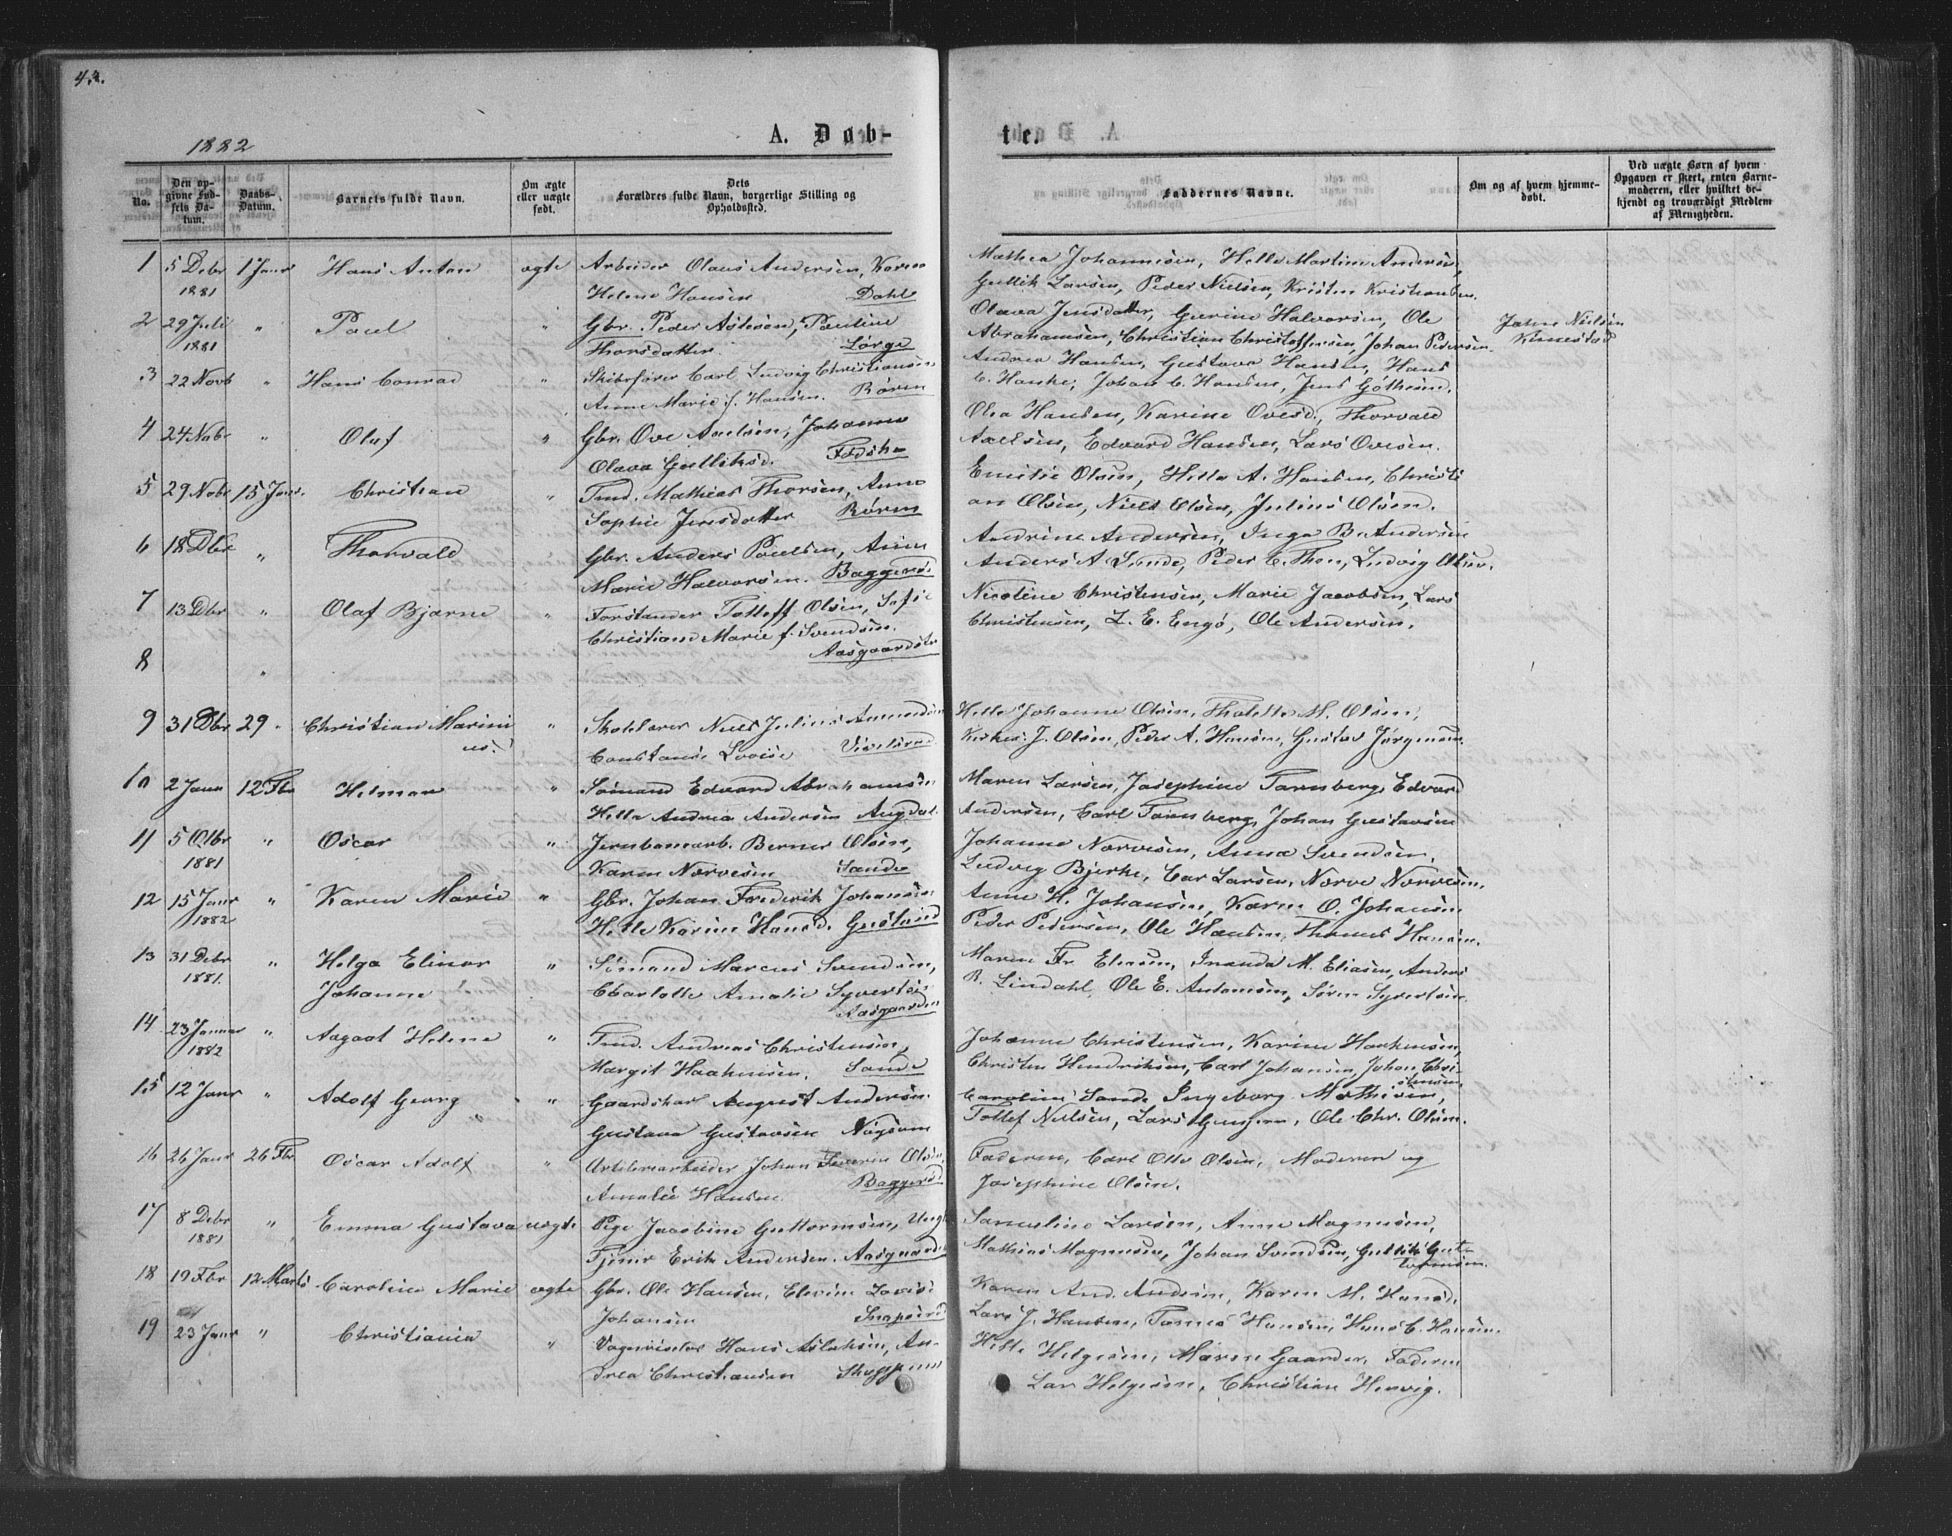 44.
1882
A. Døb-
te.
No.
Den opgivne Fødsels Datum.
Daabs-Datum.
Barnets fulde Navn.
Om ægte eller uægte født.
Dets Forældres fulde Navn, borgerlige Stilling og Opholdssted.
Faddernes Navne.
Om og af hvem hjemmedøbt.
Ved uægte Børn af hvem Opgaven er skeet, enten Barnemoderen, eller hvilket bekjendt og troværdigt Medlem af Menigheden.
1 5 Debr 1 Janr Hans Anton ægte Arbeider Olaus Andersen, Karen
1881 Helene Hansen Dahl
Mathea Johannesen, Helle Martine Andersen,
Gullik Larsen, Peder Nielsen, Kristen Kristiansen.
2 29 Juli " Paul " Gbr. Peder Aslesen, Pauline
1881 Thorsdatter. Lørge
Olava Jensdatter, Gurine Halvorsen, Ole
Abrahamsen, Christian Christoffersen, Johan Pedersen.
John Nielsen
3 22 Novb " Hans Conrad " Skibsfører Carl Ludvig Christiansen
Anne Marie f. Hansen. Røren
Andrea Hansen, Gustava Hansen, Hans
C. Hanke, Johan C. Hansen, Jens Gøthesen.
4 24 Nobr " Olaf " Gbr. Ove Axelsen, Johanne
Olava Gulliksd.
Olea Hansen, Karine Ovesd, Thorvald
Axelsen, Edvard Hansen, Lars Ovesen.
5 29 Nobr 15 Janr. Christian " Tmd. Mathias Thorsen, Anne
Sophie Jensdatter Røren
Emilie Olsen, Helle A. Hansen, Christi
an Olsen, Niels Olsen, Julius Olsen.
6 18 Dbr " Thorvald Gbr. Anders Paulsen, Anne
Marie Halvorsen. Baggerød
Andrine Andersen, Inga B. Andersen
Anders A Sande, Peder C. Thon, Ludvig Olsen.
7 13 Dbr " Olaf Bjarne " Forstander Tolleff Olsen, Sofie
Christiane Marie f. Svendsen.
Aasgaardstr
Nicoline Christensen, Marie Jacobsen, Lars
Christensen, L. E. Engø, Ole Andersen.
8 "
9 31 Dbr 29 " Christian Marini " Skolelærer Niels Julius Amundsen
us. Constanse Lovise
Helle Johanne Olsen, Tholette M. Olsen,
Kirkes. J. Olsen, Peder A. Hansen, Gustav Jørgensen.
10 2 Janr 12 Fbr Hilmar " Sømand Edvard Abrahamsen
Helle Andrea Andersen Augdal.
Maren Larsen, Josephine Farmberg, Edvard
Andersen, Carl Farmberg, Johan Gustavsen
11 5 Otbr " Oscar " Jernbanearb. Berner Olsen,
1881 Karen Narvesen Sande
Johanne Narvesen, Anna Svendsen,
Ludvig Bjerke, Car Larsen, Narve Narvesen.
12 15 Janr " Karen Marie " Gbr. Johan Frederik Johansen
1882 Helle Karine Hansd.
Anne H. Johansen, Karen O. Johansen
Peder Pedersen, Ole Hansen, Thomas Hansen.
13 31 Debr " Helga Elinor " Sømand Marcus Svendsen,
1881. Johanne Charlotte Amalie Syvertsen
Aasgaarden
Maren Fr Eliasen, Inanda M. Eliasen, Anders
B. Lindahl, Ole E. Antonsen, Søren Syvertsen.
14 23 Januar " Aagaat Helene " Tmd. Andreas Christensen,
1882 Margit Haakensen. Sande
Johanne Christensen, Karine Haakensen,
Christen Hendriksen, Carl Johansen, Johan Chri-
stensen
15 12 Janr " Adolf Georg " Gaardskarl August Andersen.
Gustava Gustavsen
Caroline Sande Ingeborg Mathisen,
Tollef Nielsen, Lars Gunsen, Ole Chr. Olsen.
16 26 Janr 26 Fbr Oscar Adolf " Artelimarbeider Johan Severin Olsen
Amalie Hansen. Baggerød
Faderen, Carl Otto Olsen, Moderen og
Josephine Olsen.
17 8 Debr " Emma Gustava uægte Pige Jacobine Guttormsen, Ungk
1881 Tjener Erik Andersen. Aasgaarden
Samueline Larsen, Anne Magnusen,
Mathias Magnusen, Johan Svendsen, Gullik Gut-
tormsen.
18 19 Fbr 12 Marts Caroline Marie ægte Gbr. Ole Hansen, Elevine Lovise
Johansen
Karen And. Andersen, Karen M. Hansd.
Lars J. Hansen, Tomas Hansen, Hans C. Hansen.
19 23 Janr " Christiania " Vognvisitør Hans Aslaksen, An-
drea Christiansen
Helle Helgesen, Maren Gaarder, Faderen
Lars Helgesen, Christian Hervig.